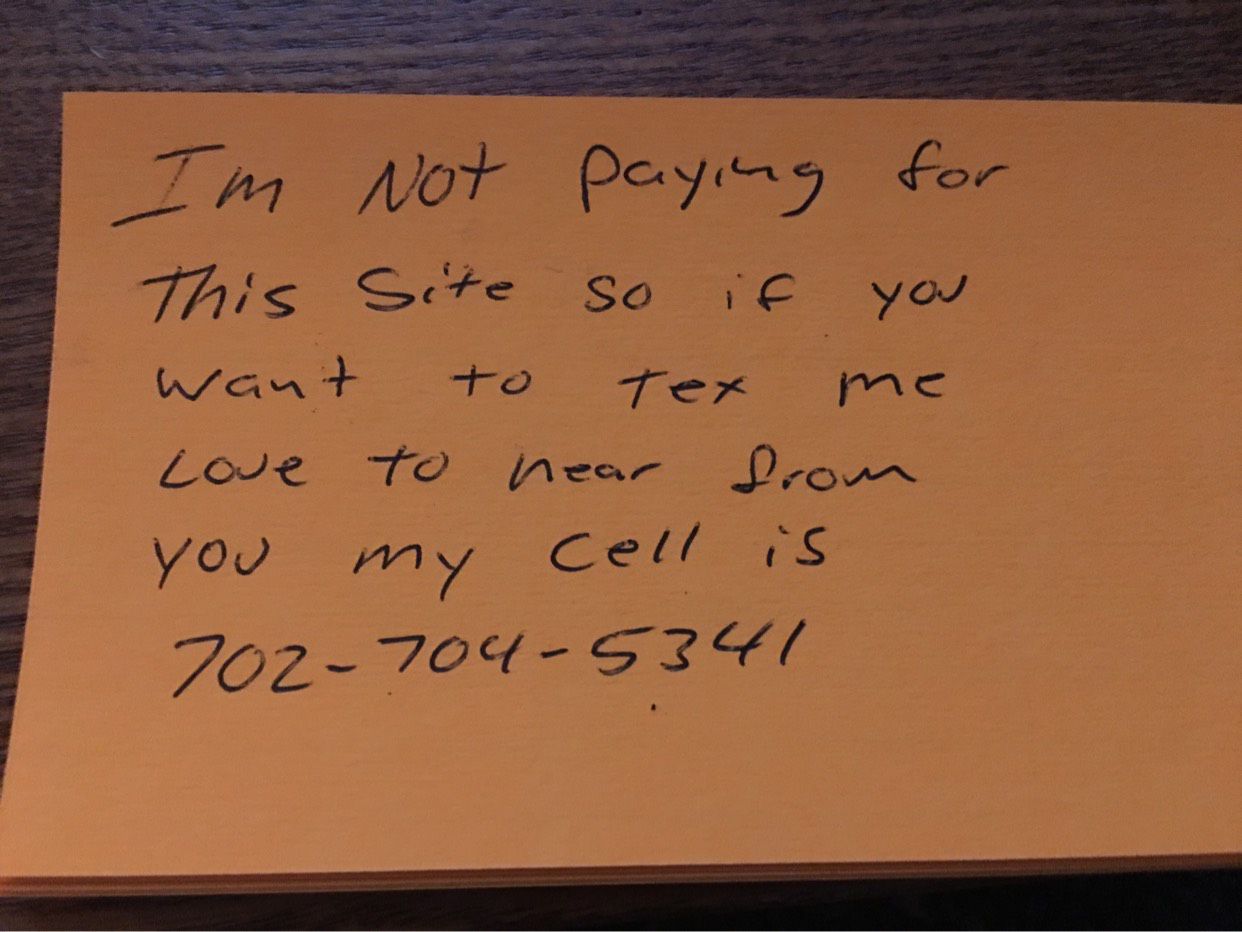 Im Not Paying for
This Site so if you
want to Tex me
Love to hear from
you my cell is
702-704-5341